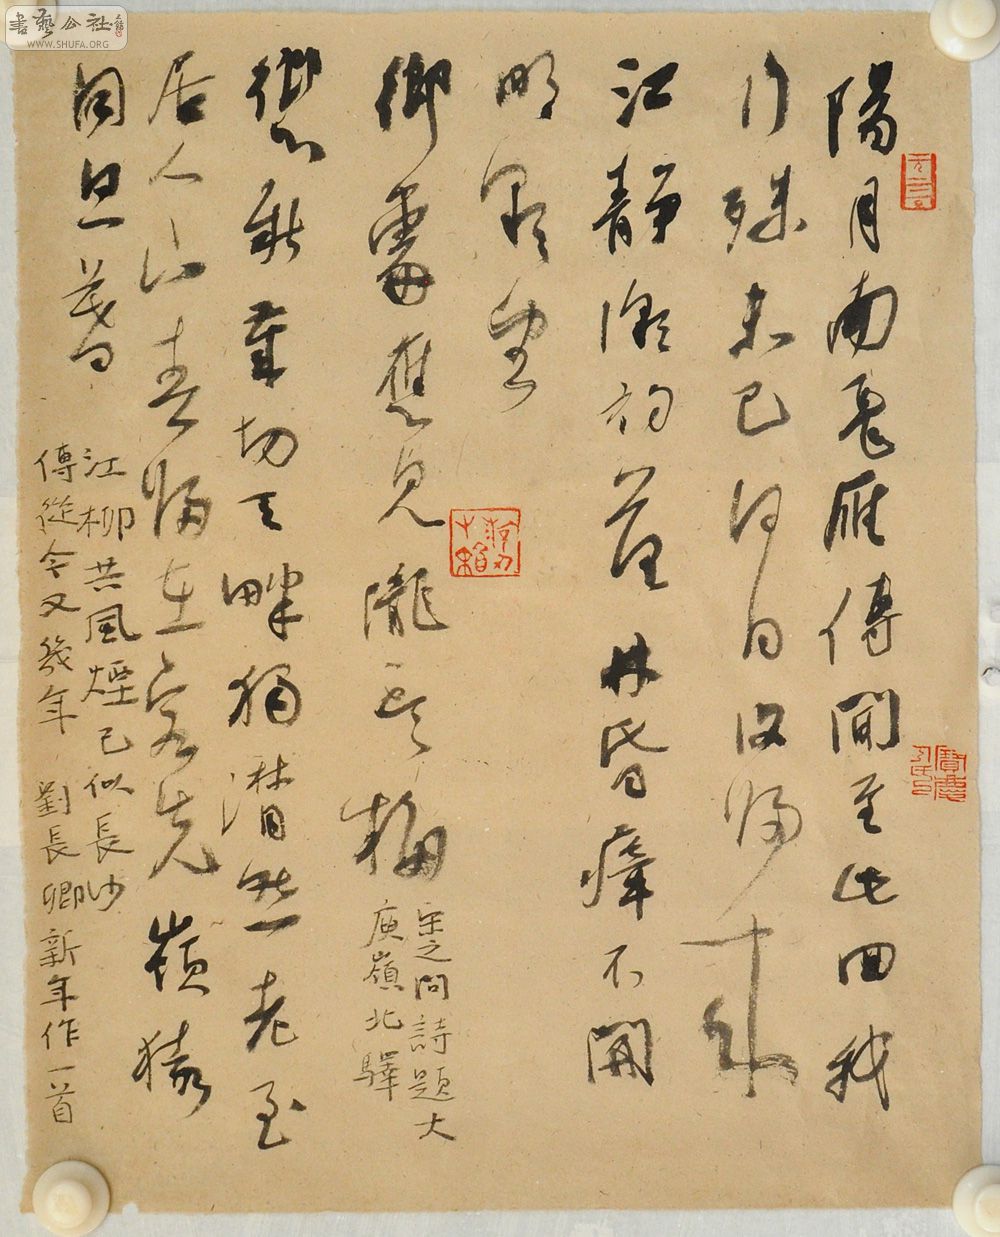 陽月南飛雁傳聞至此回我
行殊未已何日復歸來
江靜潮初落林昏瘴不開
明朝望
鄉處應見隴頭梅
宋之問詩題大
庾嶺北驛
鄉心新歲切天畔獨潸然老至
居人下春歸在客先嶺猿
同旦暮
江柳共風煙已似長沙
傅從今又幾年 劉長卿新年作一首
書藝公社
WWW.SHUFA.ORG